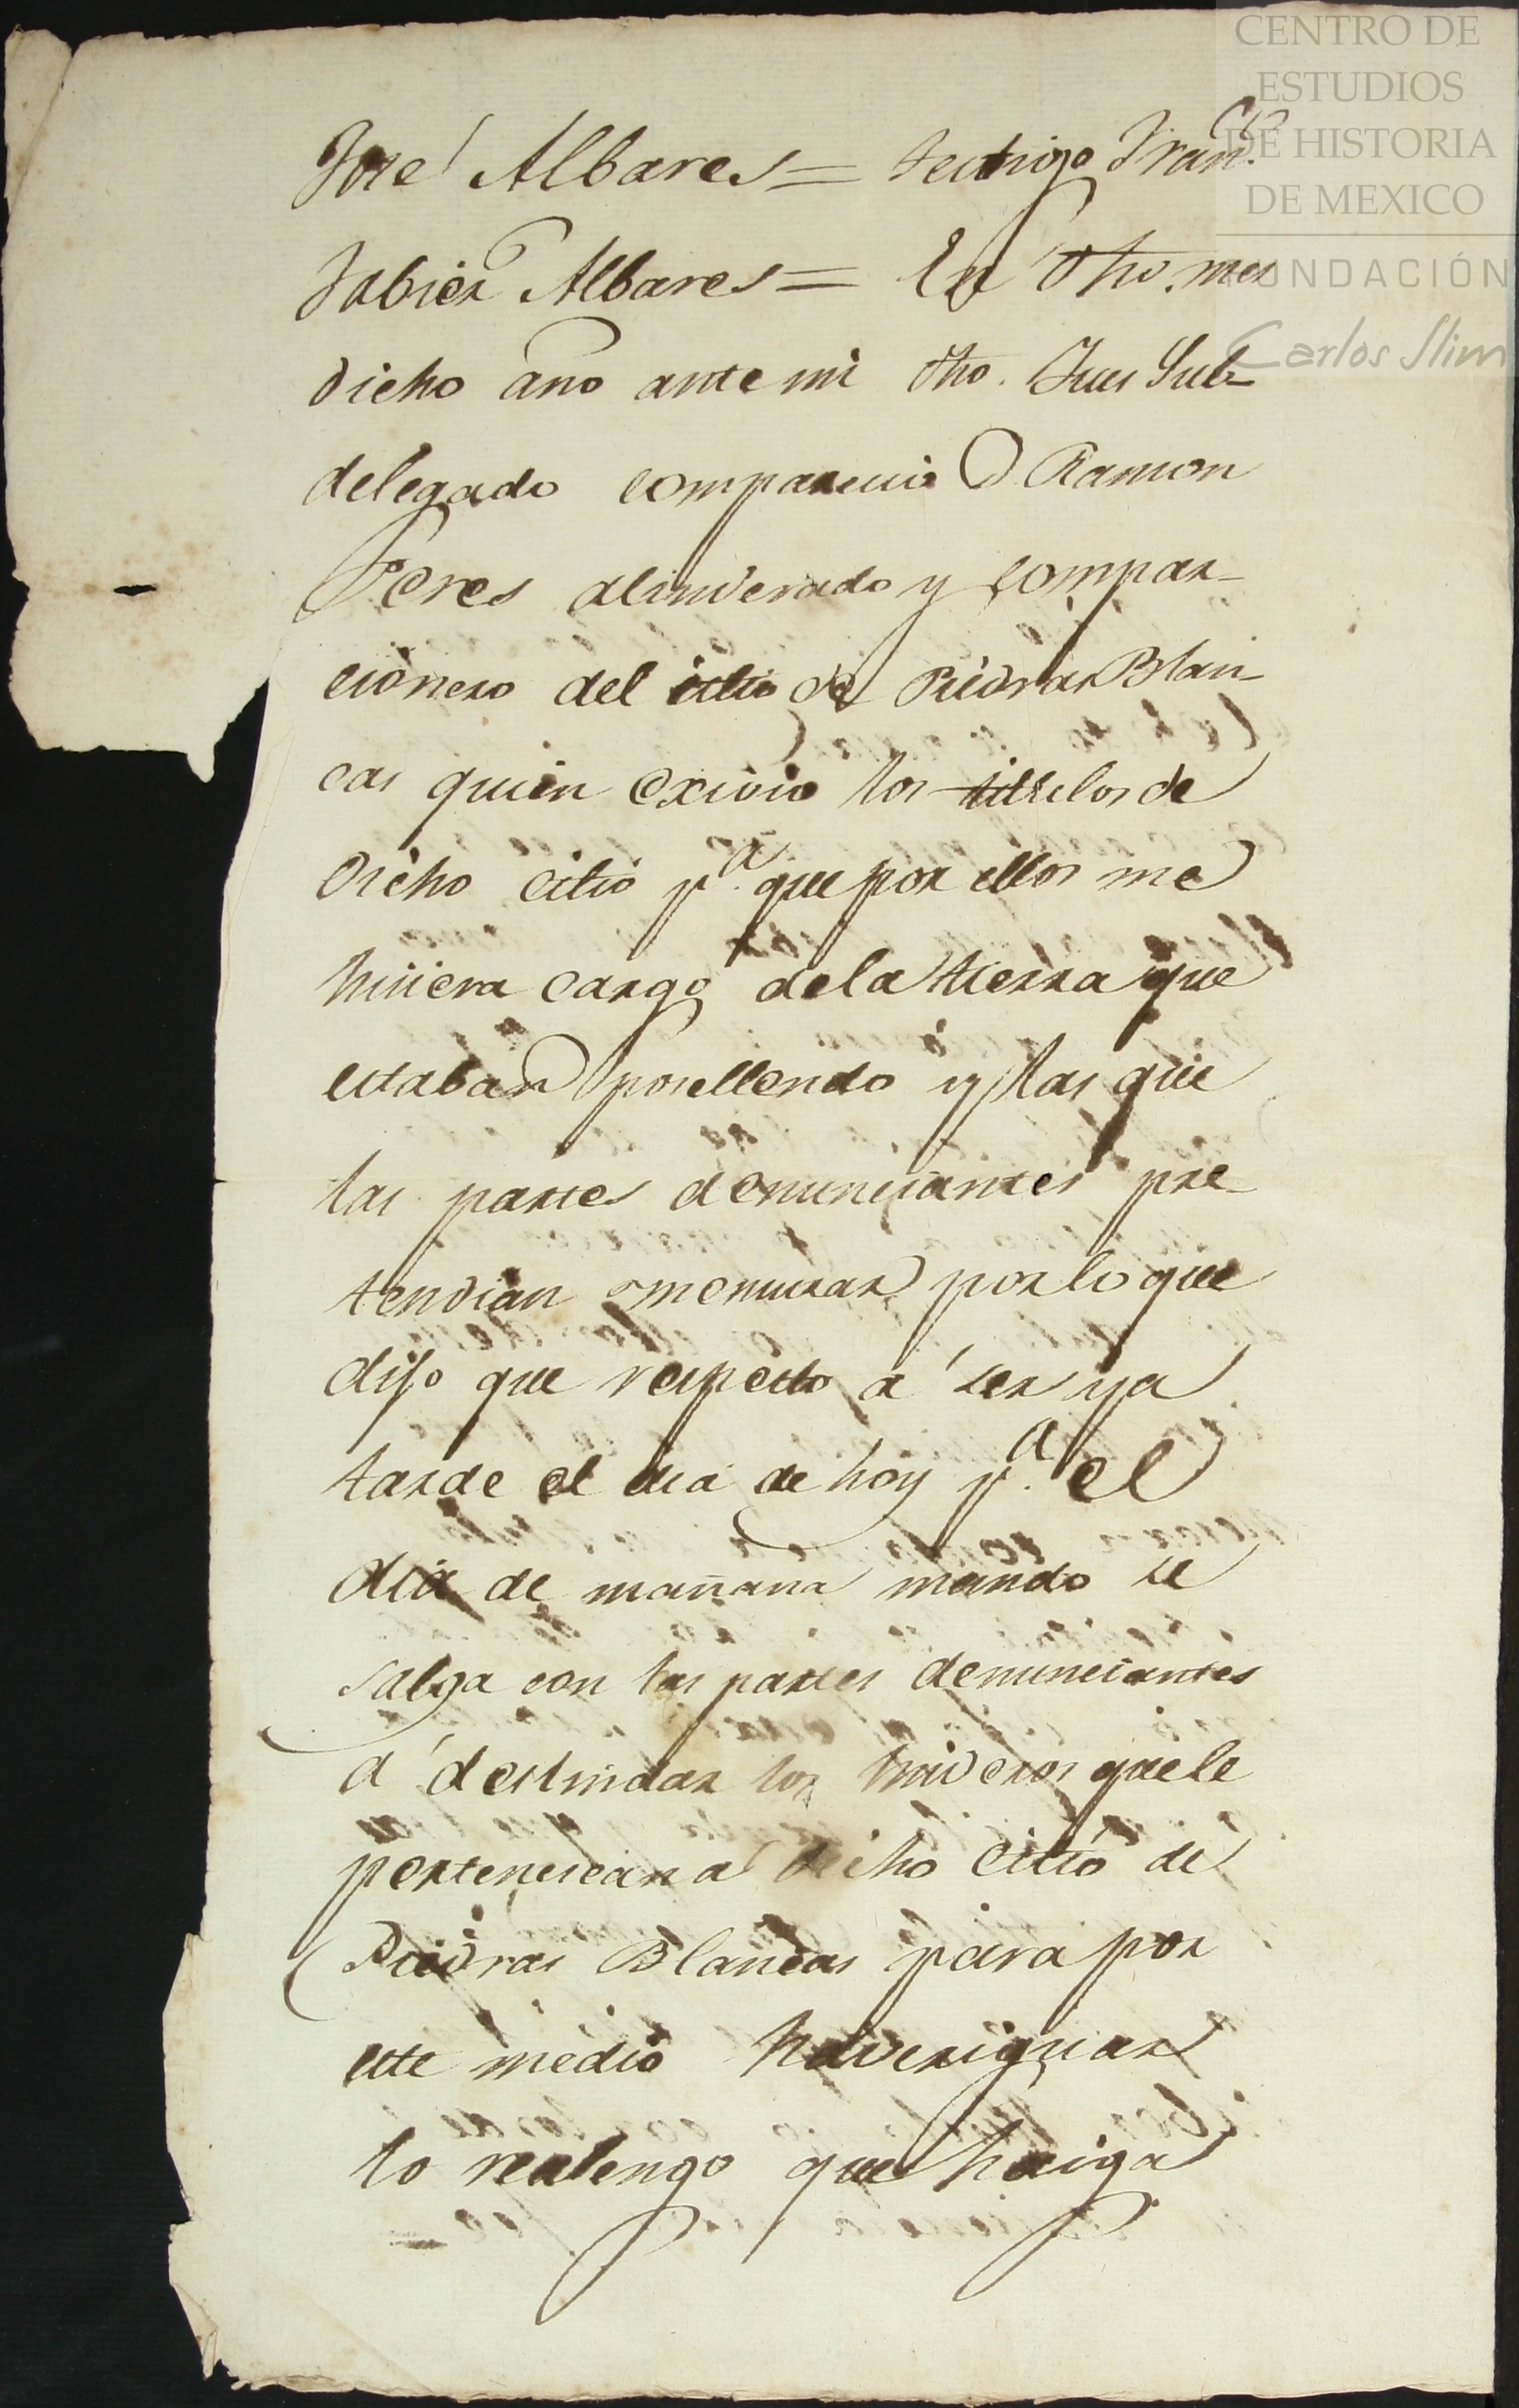 CENTRO DE
ESTUDIOS
DE HISTORIA
DE MEXICO
FUNDACIÓN
Carlos Slim
José Albares = testigo Fran.co
Jabier Albares = En dho. mes
dicho año ante mi dho. Jues Sub-
delegado comparecio D Ramon
Peres alinderado y compar-
cionero del citio de Piedras Blan-
cas quien exivio los titulos de
dicho citio p.a que por ellos me
hiciera cargo de la tierra que
estaban posellendo y las que
las partes denunciantes pre-
tendian mensurar por lo que
dijo que respecto á ser ya
tarde el dia de hoy p.a el
dia de mañana mando se
salga con las partes denunciantes
á deslindar los linderos que le
pertenescan a dicho citio de
Piedras Blancas para por
este medio haveriguar
lo realengo que haiga